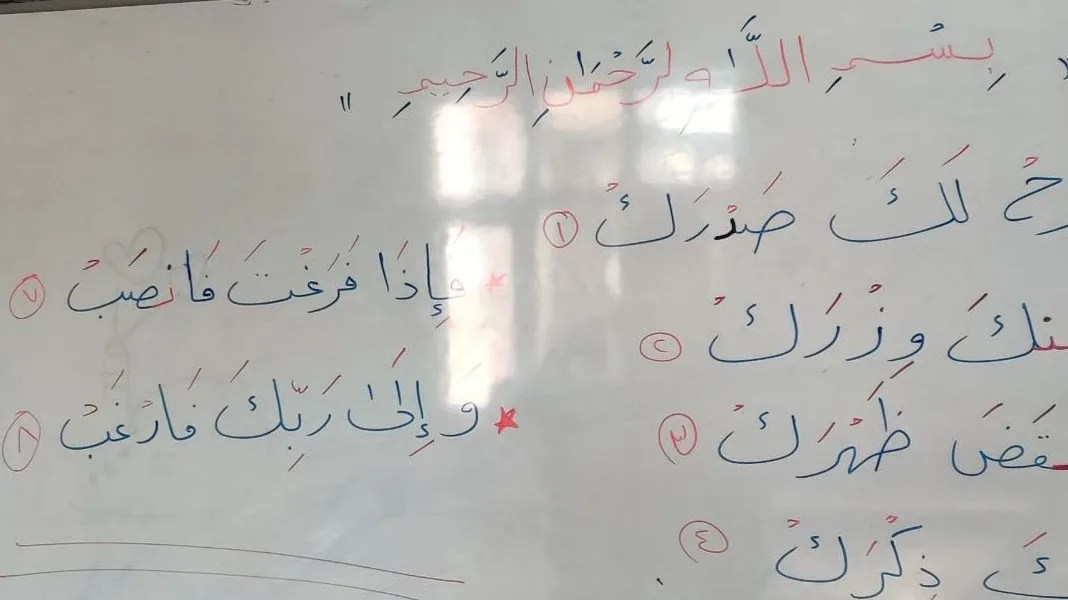 بِسْمِ اللَّهِ الرَّحْمَانِ الرَّحِيمِ "
رَحْ لَكَ صَدْرَكْ ١
نكَ وِزْرَكْ ٢
قَضَ ظَهْرَكْ ٣
كَ ذِكْرَكْ ٤
فَإِذَا فَرَغْتَ فَانصَبْ ٧
وَإِلَىٰ رَبِّكَ فَارْغَبْ ٨